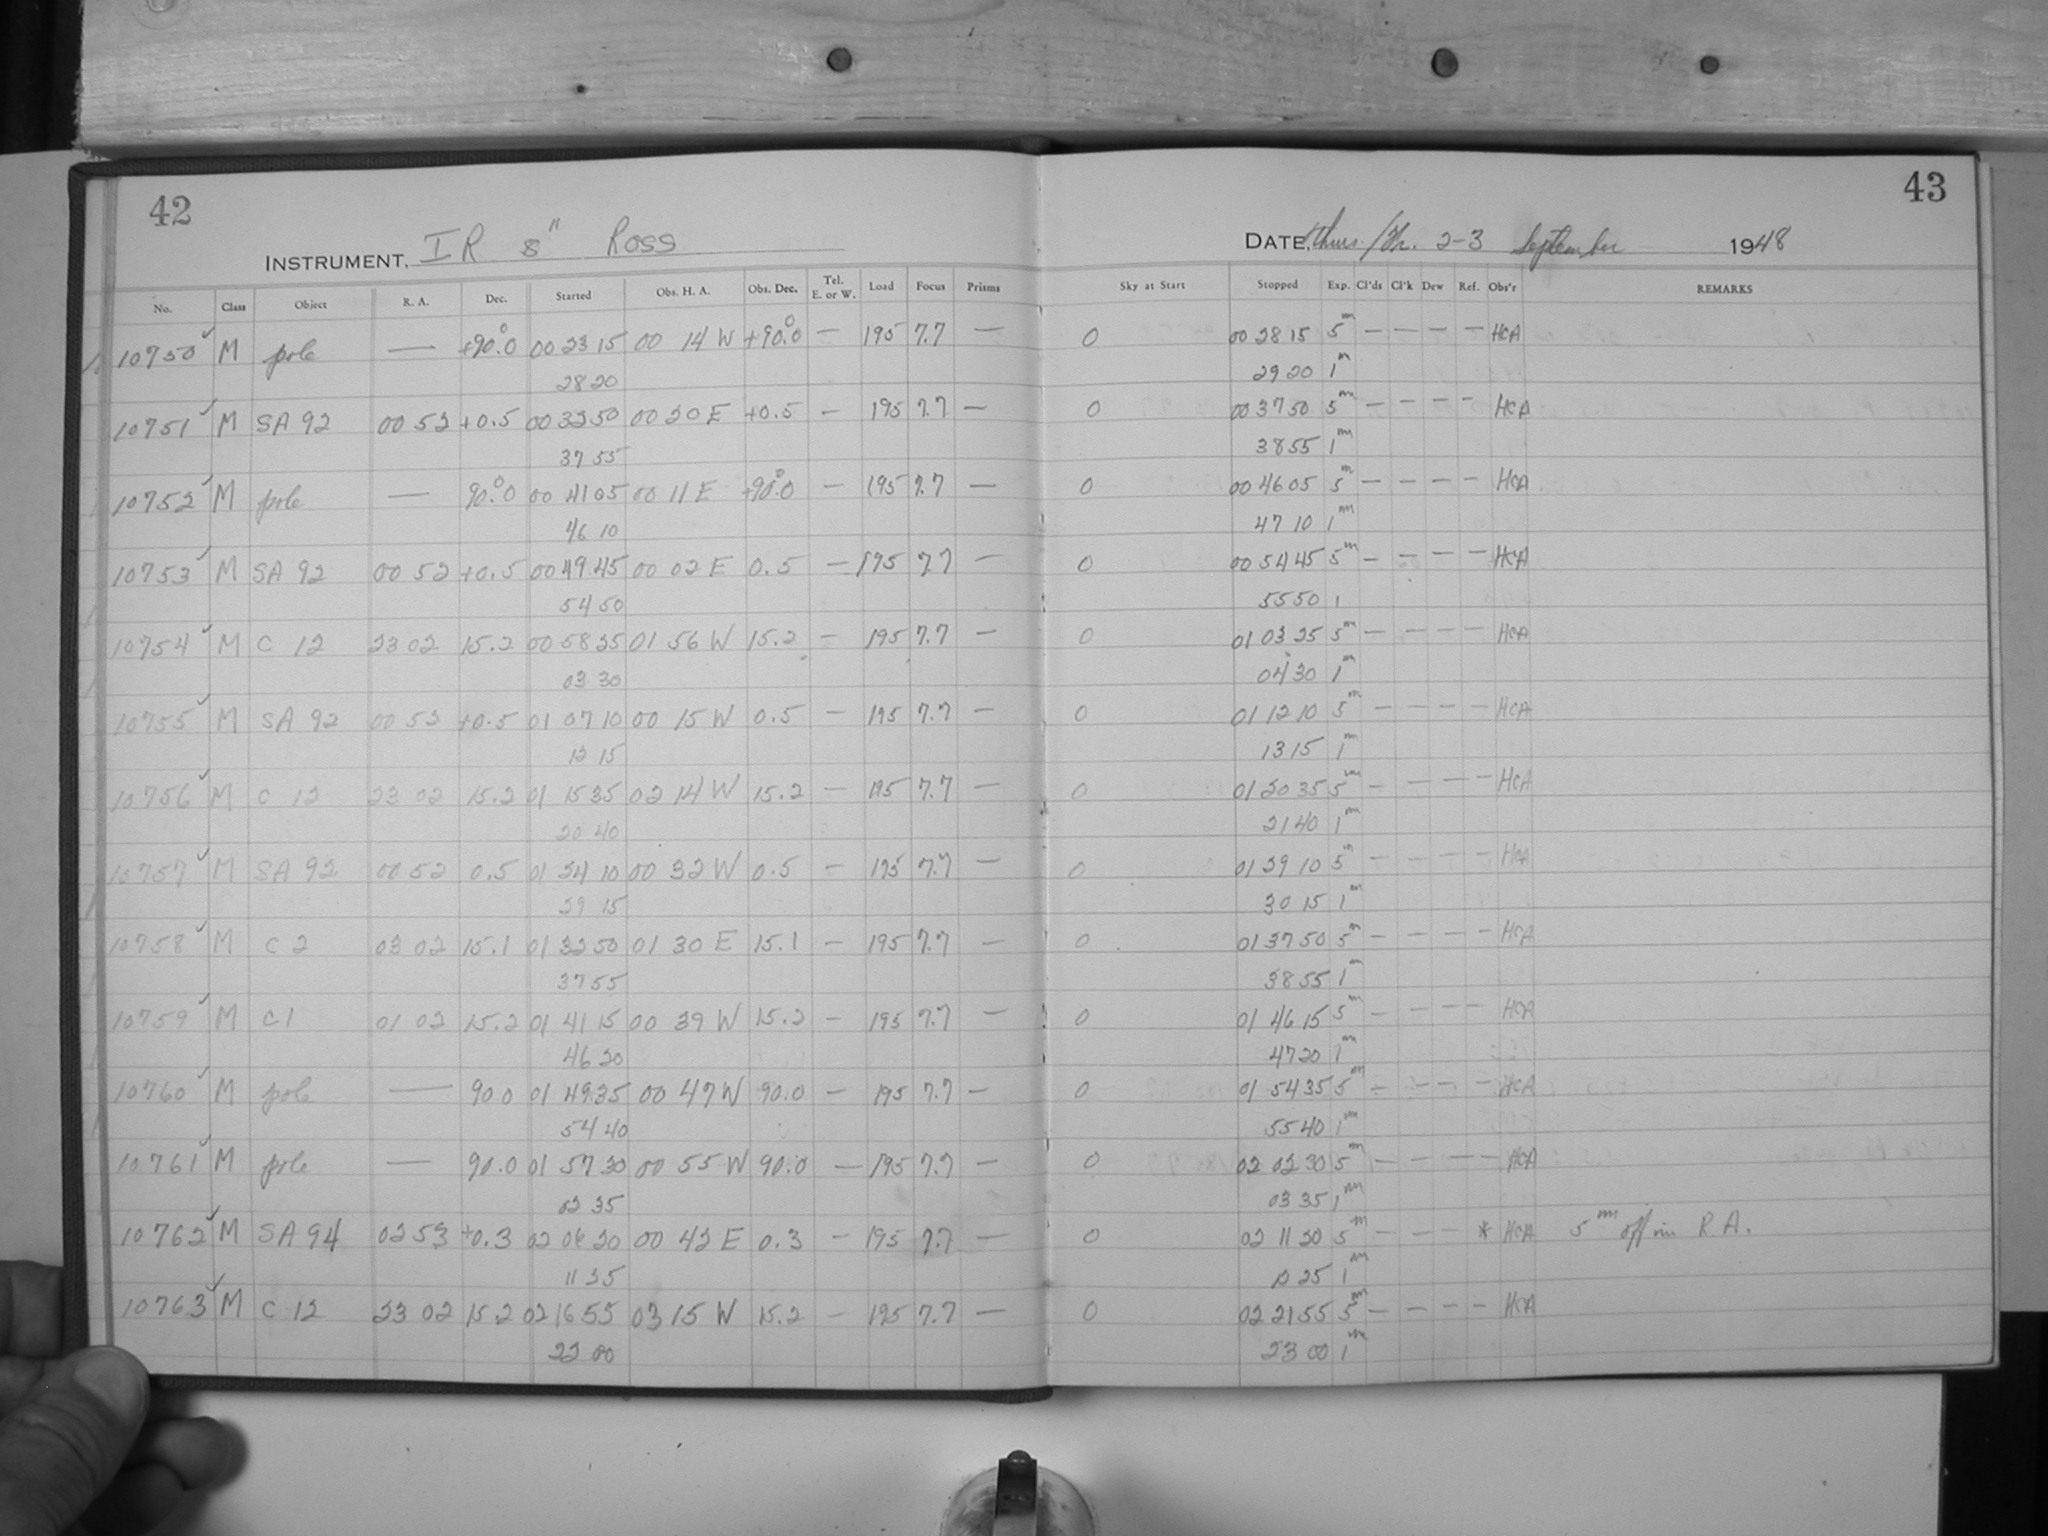 42
43
INSTRUMENT, IR 8" Ross
DATE, Thurs./Fr. 2-3 September 1948
No. Class Object R. A. Dec. Started Obs. H. A. Obs. Dec. Tel. E. or W. Load Focus Prisms Sky at Start Stopped Exp. Cl'ds Cl'k Dew Ref. Obs'r REMARKS
10750 ✓ M pole — +90.0° 00 23 15 00 14 W +90.0° — 195 7.7 — 0 00 28 15 5m — — — — HCA
28 20 29 20 1m
10751 ✓ M SA 92 00 52 +0.5 00 32 50 00 20 E +0.5 — 195 7.7 — 0 00 37 50 5m — — — — HCA
37 55 38 55 1m
10752 ✓ M pole — 90.0° 00 41 05 00 11 E +90.0° — 195 7.7 — 0 00 46 05 5m — — — — HCA
46 10 47 10 1m
10753 ✓ M SA 92 00 52 +0.5 00 49 45 00 02 E 0.5 — 195 7.7 — 0 00 54 45 5m — — — — HCA
54 50 55 50 1
10754 ✓ M C 12 23 02 15.2 00 58 25 01 56 W 15.2 — 195 7.7 — 0 01 03 25 5m — — — — HCA
03 30 04 30 1m
10755 ✓ M SA 92 00 52 +0.5 01 07 10 00 15 W 0.5 — 195 7.7 — 0 01 12 10 5m — — — — HCA
12 15 13 15 1m
10756 ✓ M C 12 23 02 15.2 01 15 35 02 14 W 15.2 — 195 7.7 — 0 01 20 35 5m — — — — HCA
20 40 21 40 1m
10757 ✓ M SA 92 00 52 0.5 01 24 10 00 32 W 0.5 — 195 7.7 — 0 01 29 10 5m — — — — HCA
29 15 30 15 1m
10758 ✓ M C 2 03 02 15.1 01 32 50 01 30 E 15.1 — 195 7.7 — 0 01 37 50 5m — — — — HCA
37 55 38 55 1m
10759 ✓ M C 1 01 02 15.2 01 41 15 00 39 W 15.2 — 195 7.7 — 0 01 46 15 5m — — — — HCA
46 20 47 20 1m
10760 ✓ M pole — 90.0 01 49 35 00 47 W 90.0 — 195 7.7 — 0 01 54 35 5m — — — — HCA
54 40 55 40 1m
10761 ✓ M pole — 90.0 01 57 30 00 55 W 90.0 — 195 7.7 — 0 02 02 30 5m — — — — HCA
02 35 03 35 1m
10762 ✓ M SA 94 02 53 +0.3 02 06 20 00 42 E 0.3 — 195 7.7 — 0 02 11 20 5m — — — * HCA 5m off in R.A.
11 25 12 25 1m
10763 ✓ M C 12 23 02 15.2 02 16 55 03 15 W 15.2 — 195 7.7 — 0 02 21 55 5m — — — — HCA
22 00 23 00 1m